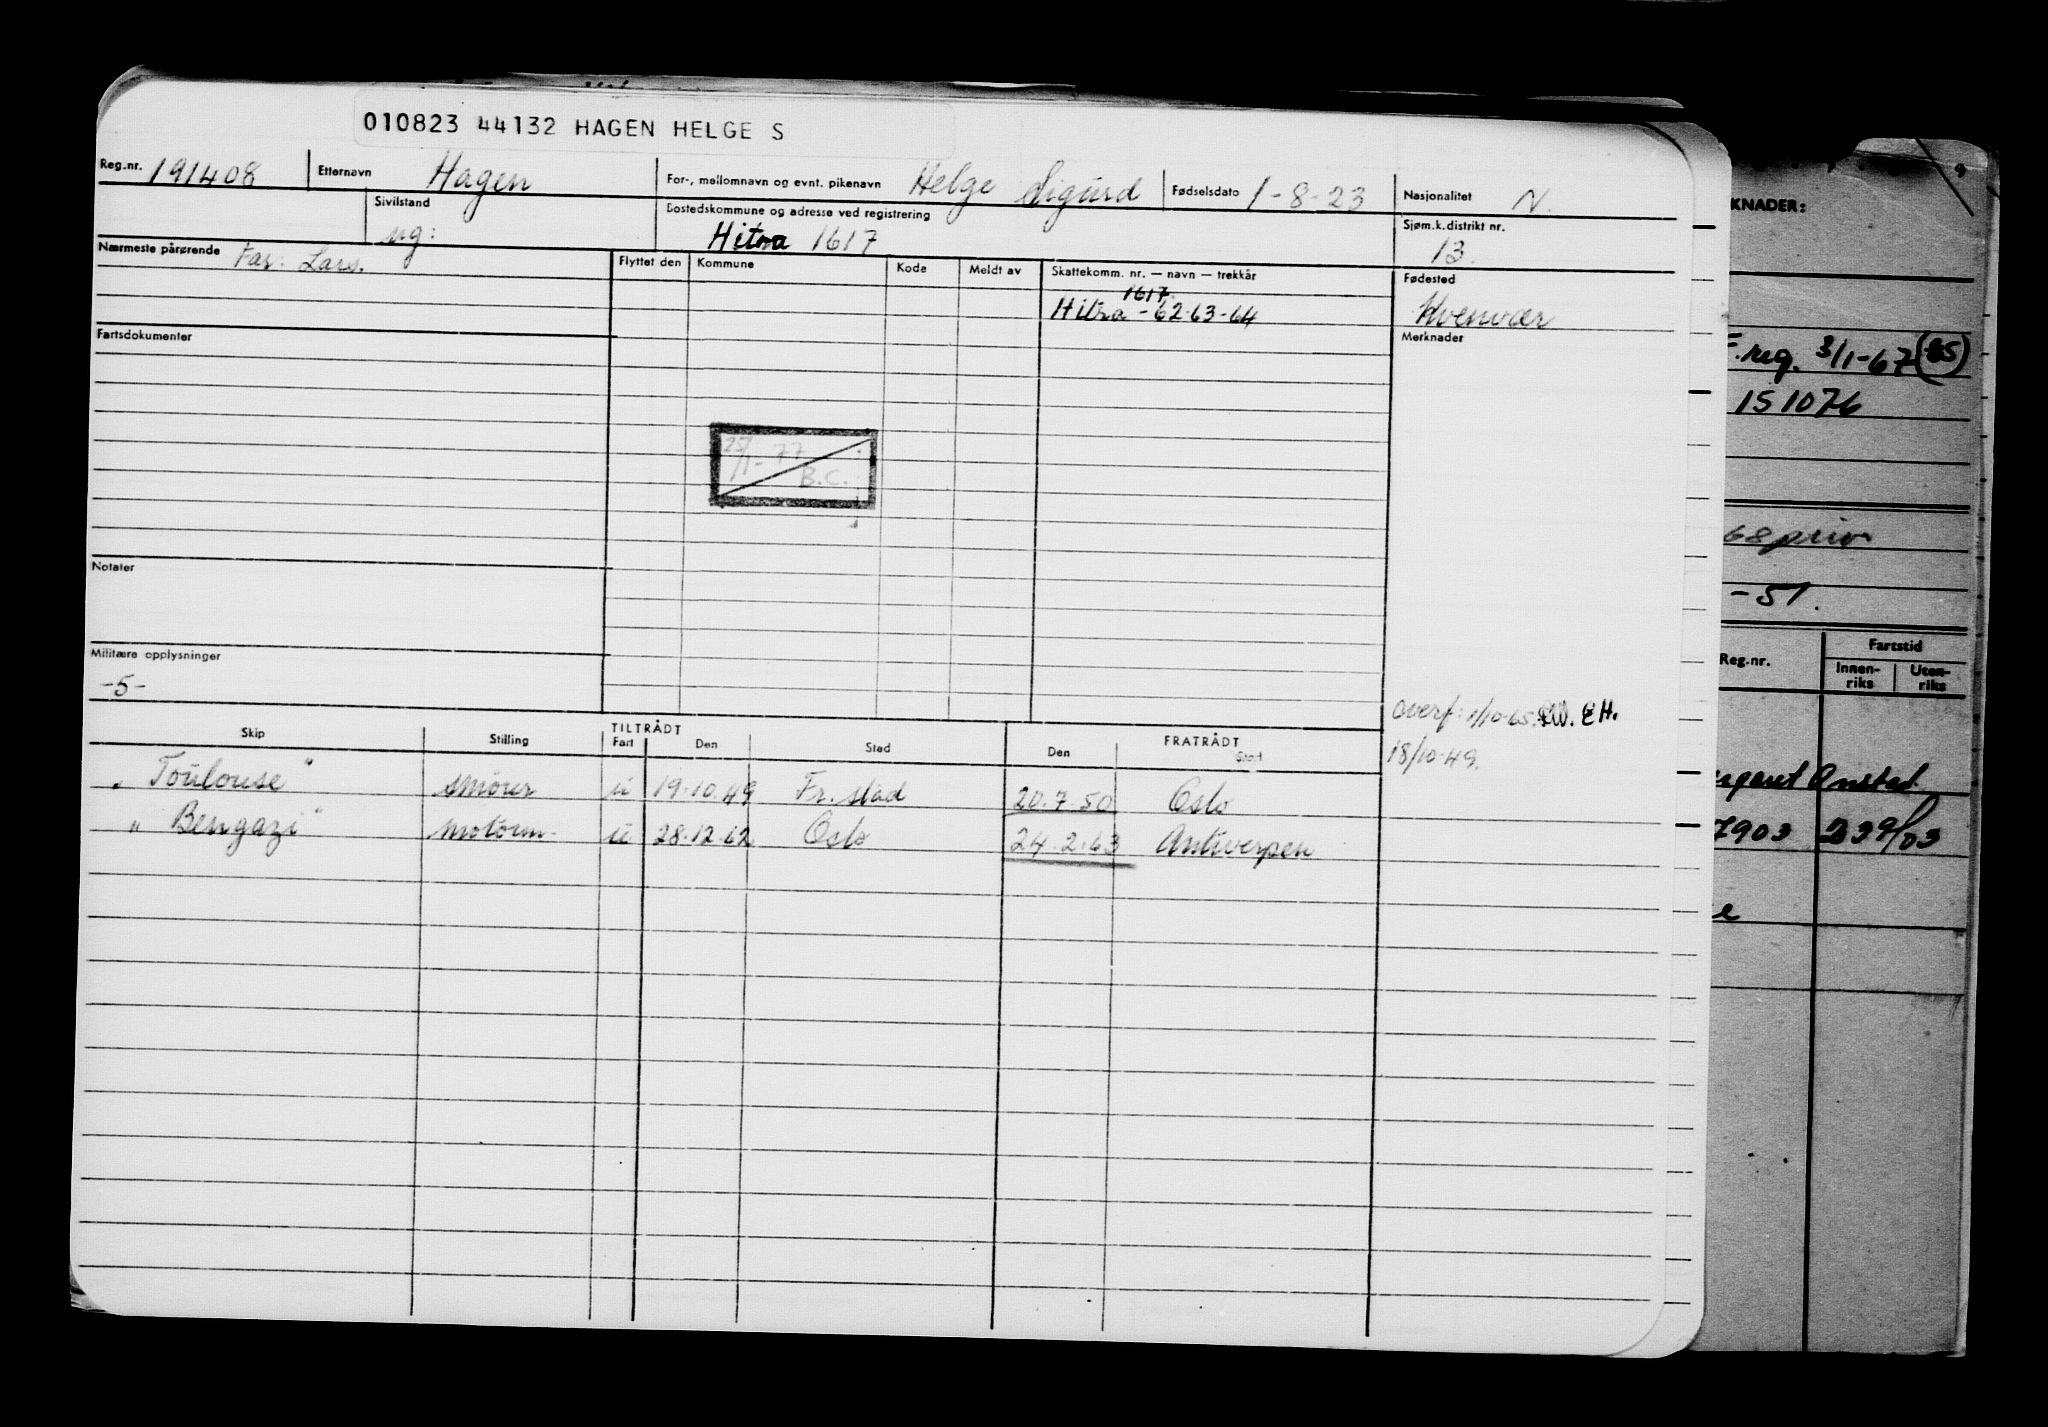 010823 44132 HAGEN HELGE S
Reg.nr. 191408 Etternavn Hagen For-, mellomnavn og evnt. pikenavn Helge Sigurd Fødselsdato 1-8-23 Nasjonalitet N.
Sivilstand ug: Bostedskommune og adresse ved registrering Hitra 1617 Sjøm.k.distrikt nr. 13.
Nærmeste pårørende Far: Lars. Flyttet den Kommune Kode Meldt av Skattekomm. nr. — navn — trekkår Fødested
1617
Hitra - 62-63-64 Kvenvær
Fartsdokumenter Merknader
25/1-77
B.C.
Notater
Militære opplysninger
-5-
overf: 1/10-65. EH.
18/10-49.
Skip Stilling TILTRÅDT Fart Den Sted FRATRÅDT Den Sted
"Toulouse" smörer u 19-10-49 Fr.stad 20.7.50 Oslo
"Bengazi" motorm. u 28-12-62 Oslo 24.2.63 Antwerpen
KNADER:
F.reg. 3/1-67 (65)
151076
68 priv
-51.
Reg.nr. Fartstid
Innen-riks Uten-riks
Onstad.
7903 239/03
e